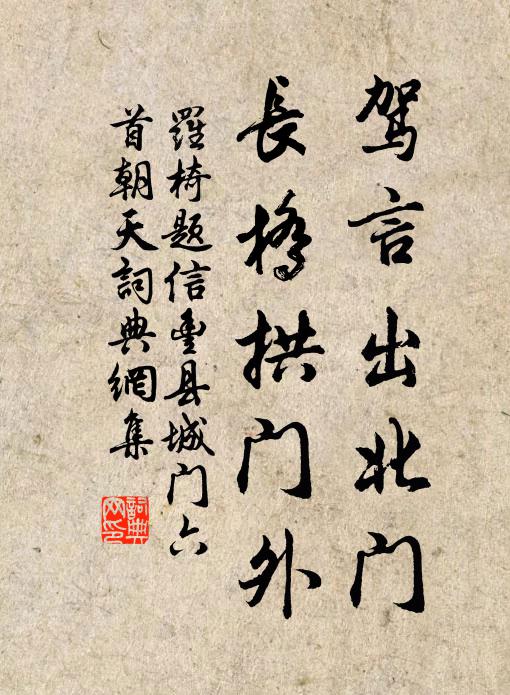 驾言出北门
長橋拱門外
羅椅题信豊县城门六
首朝天詞典網集
詞典网印